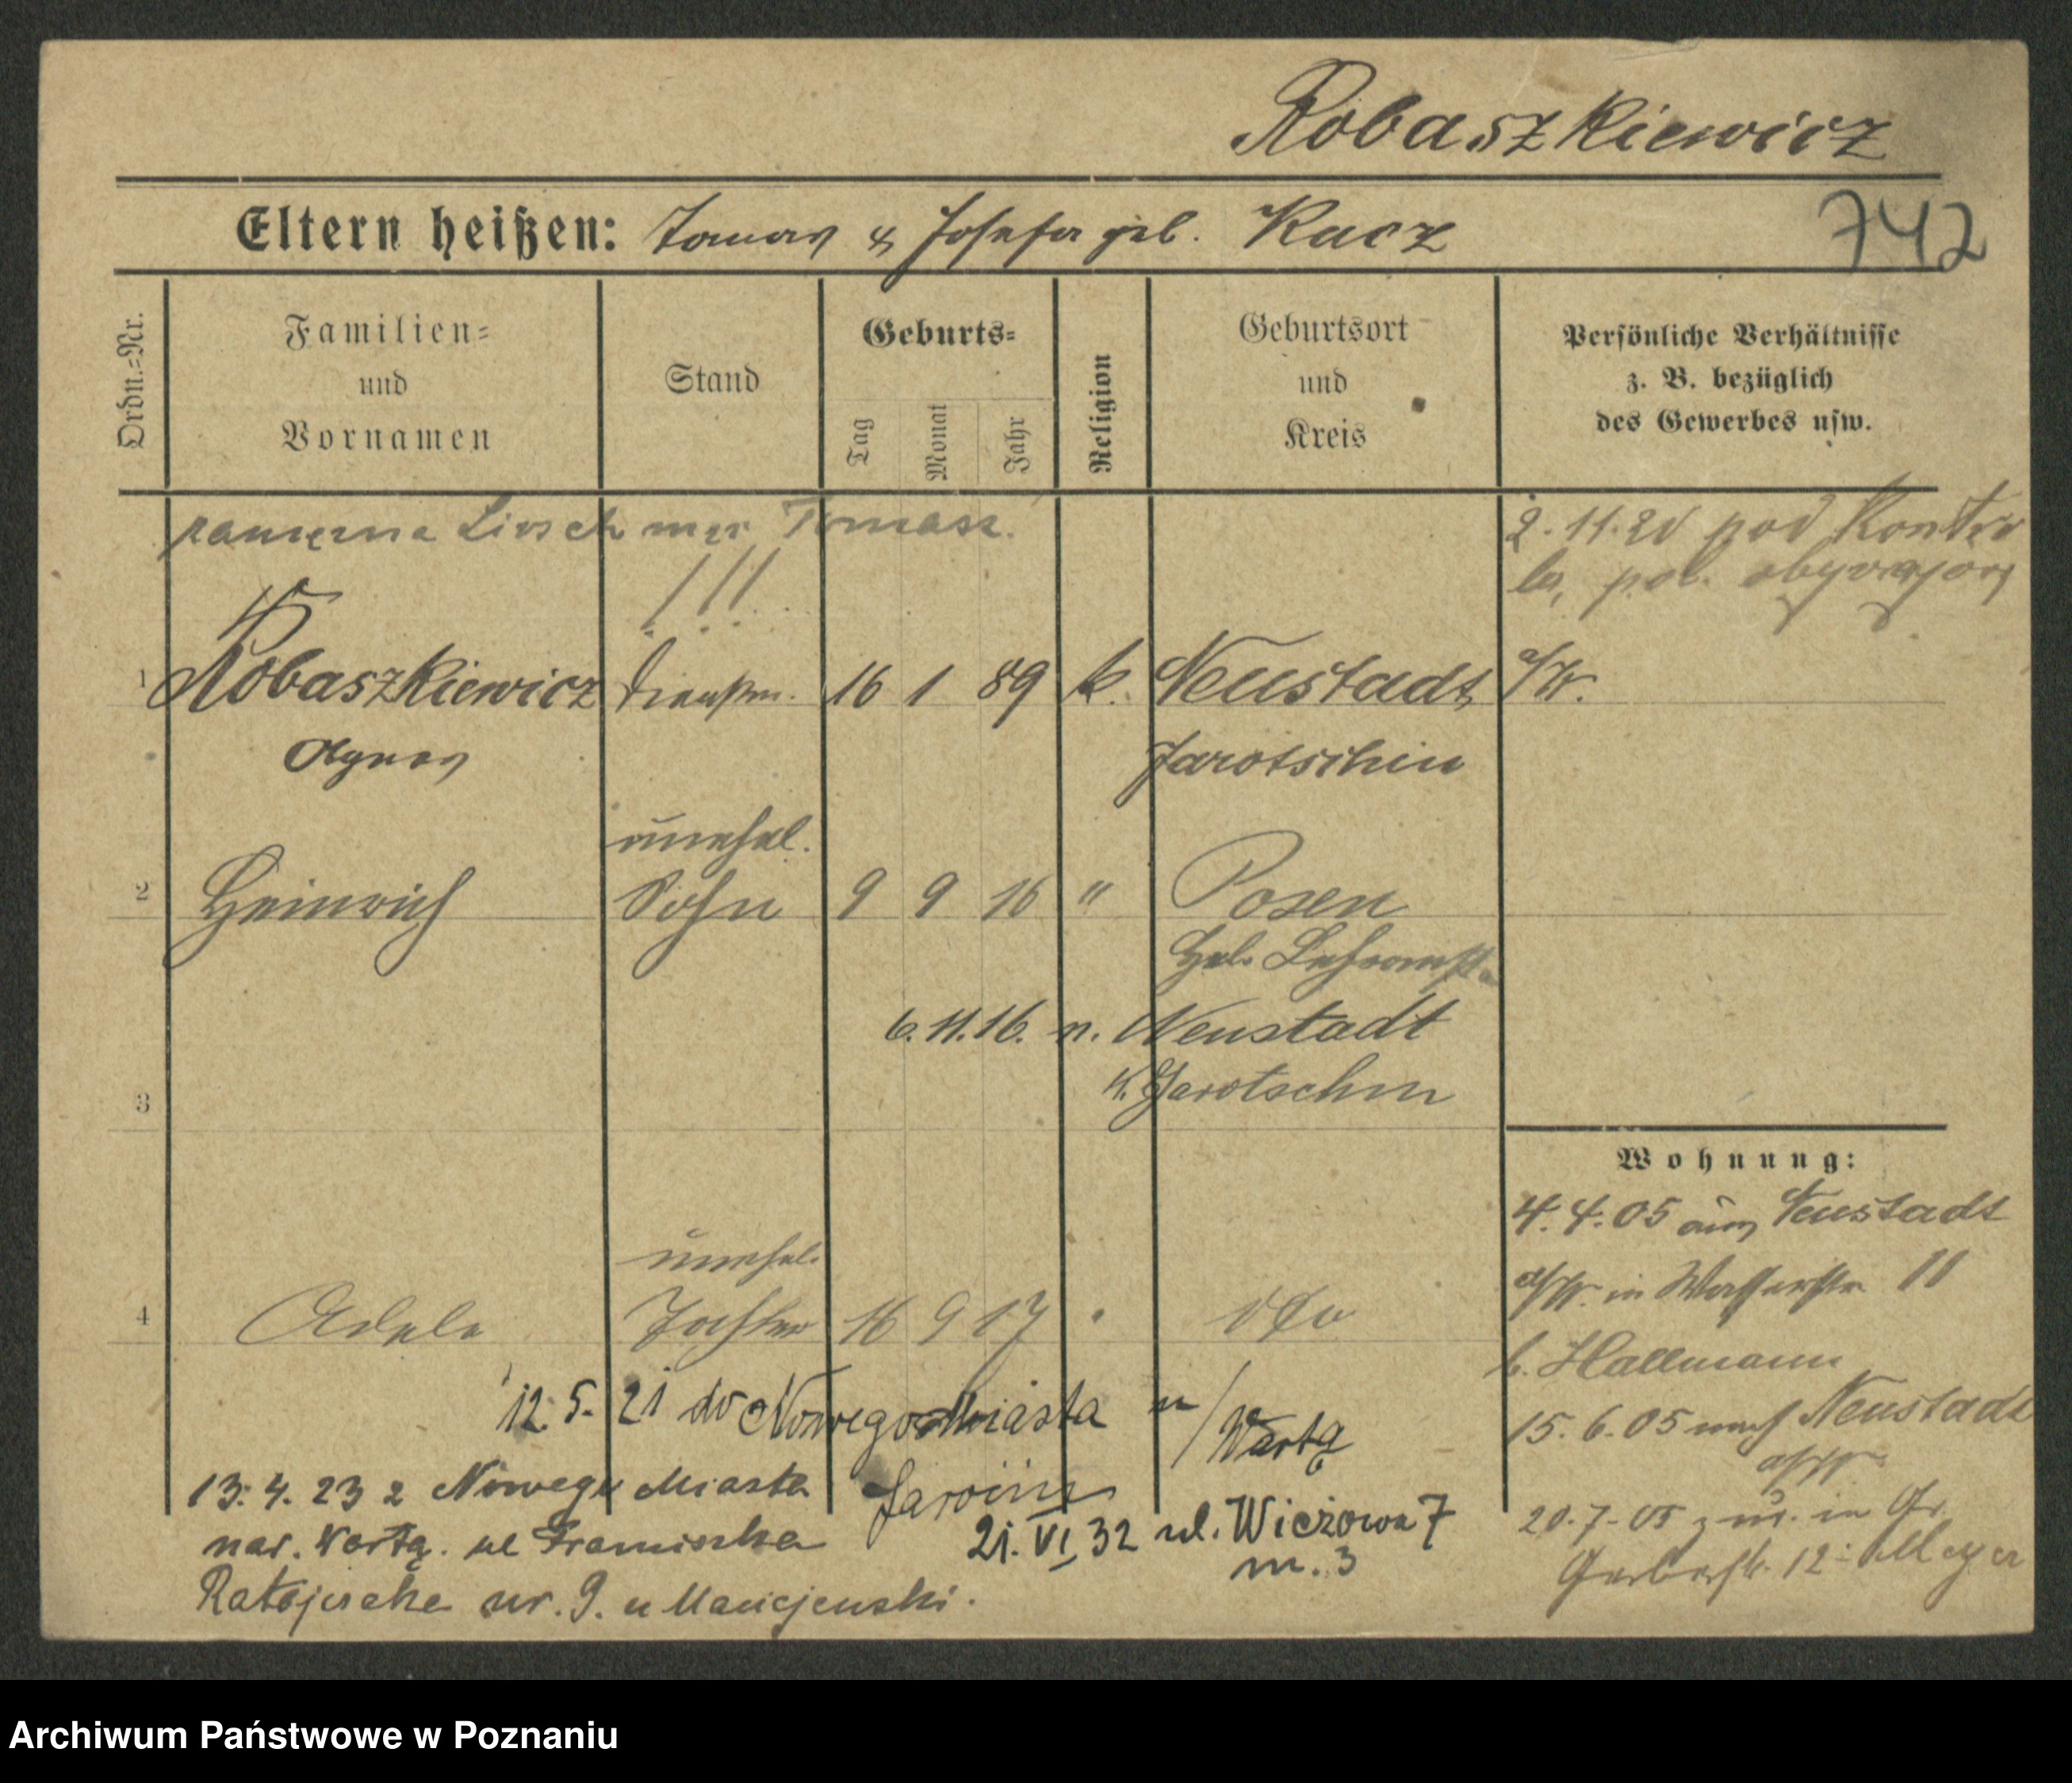 Robaszkiewicz
Eltern heißen: Tomas & Josefa geb. Kucz
742
Ordn.-Nr.
Familien-
und
Vornamen
Stand
Geburts-
Tag
Monat
Jahr
Religion
Geburtsort
und
Kreis
Persönliche Verhältnisse
z. B. bezüglich
des Gewerbes usw.
zamężna mąż Tomasz.
2.11.20 pod
pol.
!!!
1 Robaszkiewicz 16 1 89 k. Neustadt
Agnes Jarotschin
unehel.
2 Heinrich Sohn 9 9 16 " Posen
Heb. Lehranst.
6.11.16. n. Neustadt
K. Jarotschin
3
Wohnung:
4. 4. 05 aus Neustadt
in Wasserstr. 11
b. Hallmann
15. 6. 05 nach Neustadt
20. 7. 05 in Gr.
Gerberstr. 12 Meyer
unehel.
4 Adele Tochter 16 9 17 " dto
12. 5. 21 do Nowego Miasta n/Wartą
Jarocin
13. 4. 23 z Nowego Miasta
nad. Wartą. ul Franciszka
Ratajczaka nr. 9. u Maciejewski.
21. VI. 32 ul. Wieżowa 7
m. 3
Archiwum Państwowe w Poznaniu